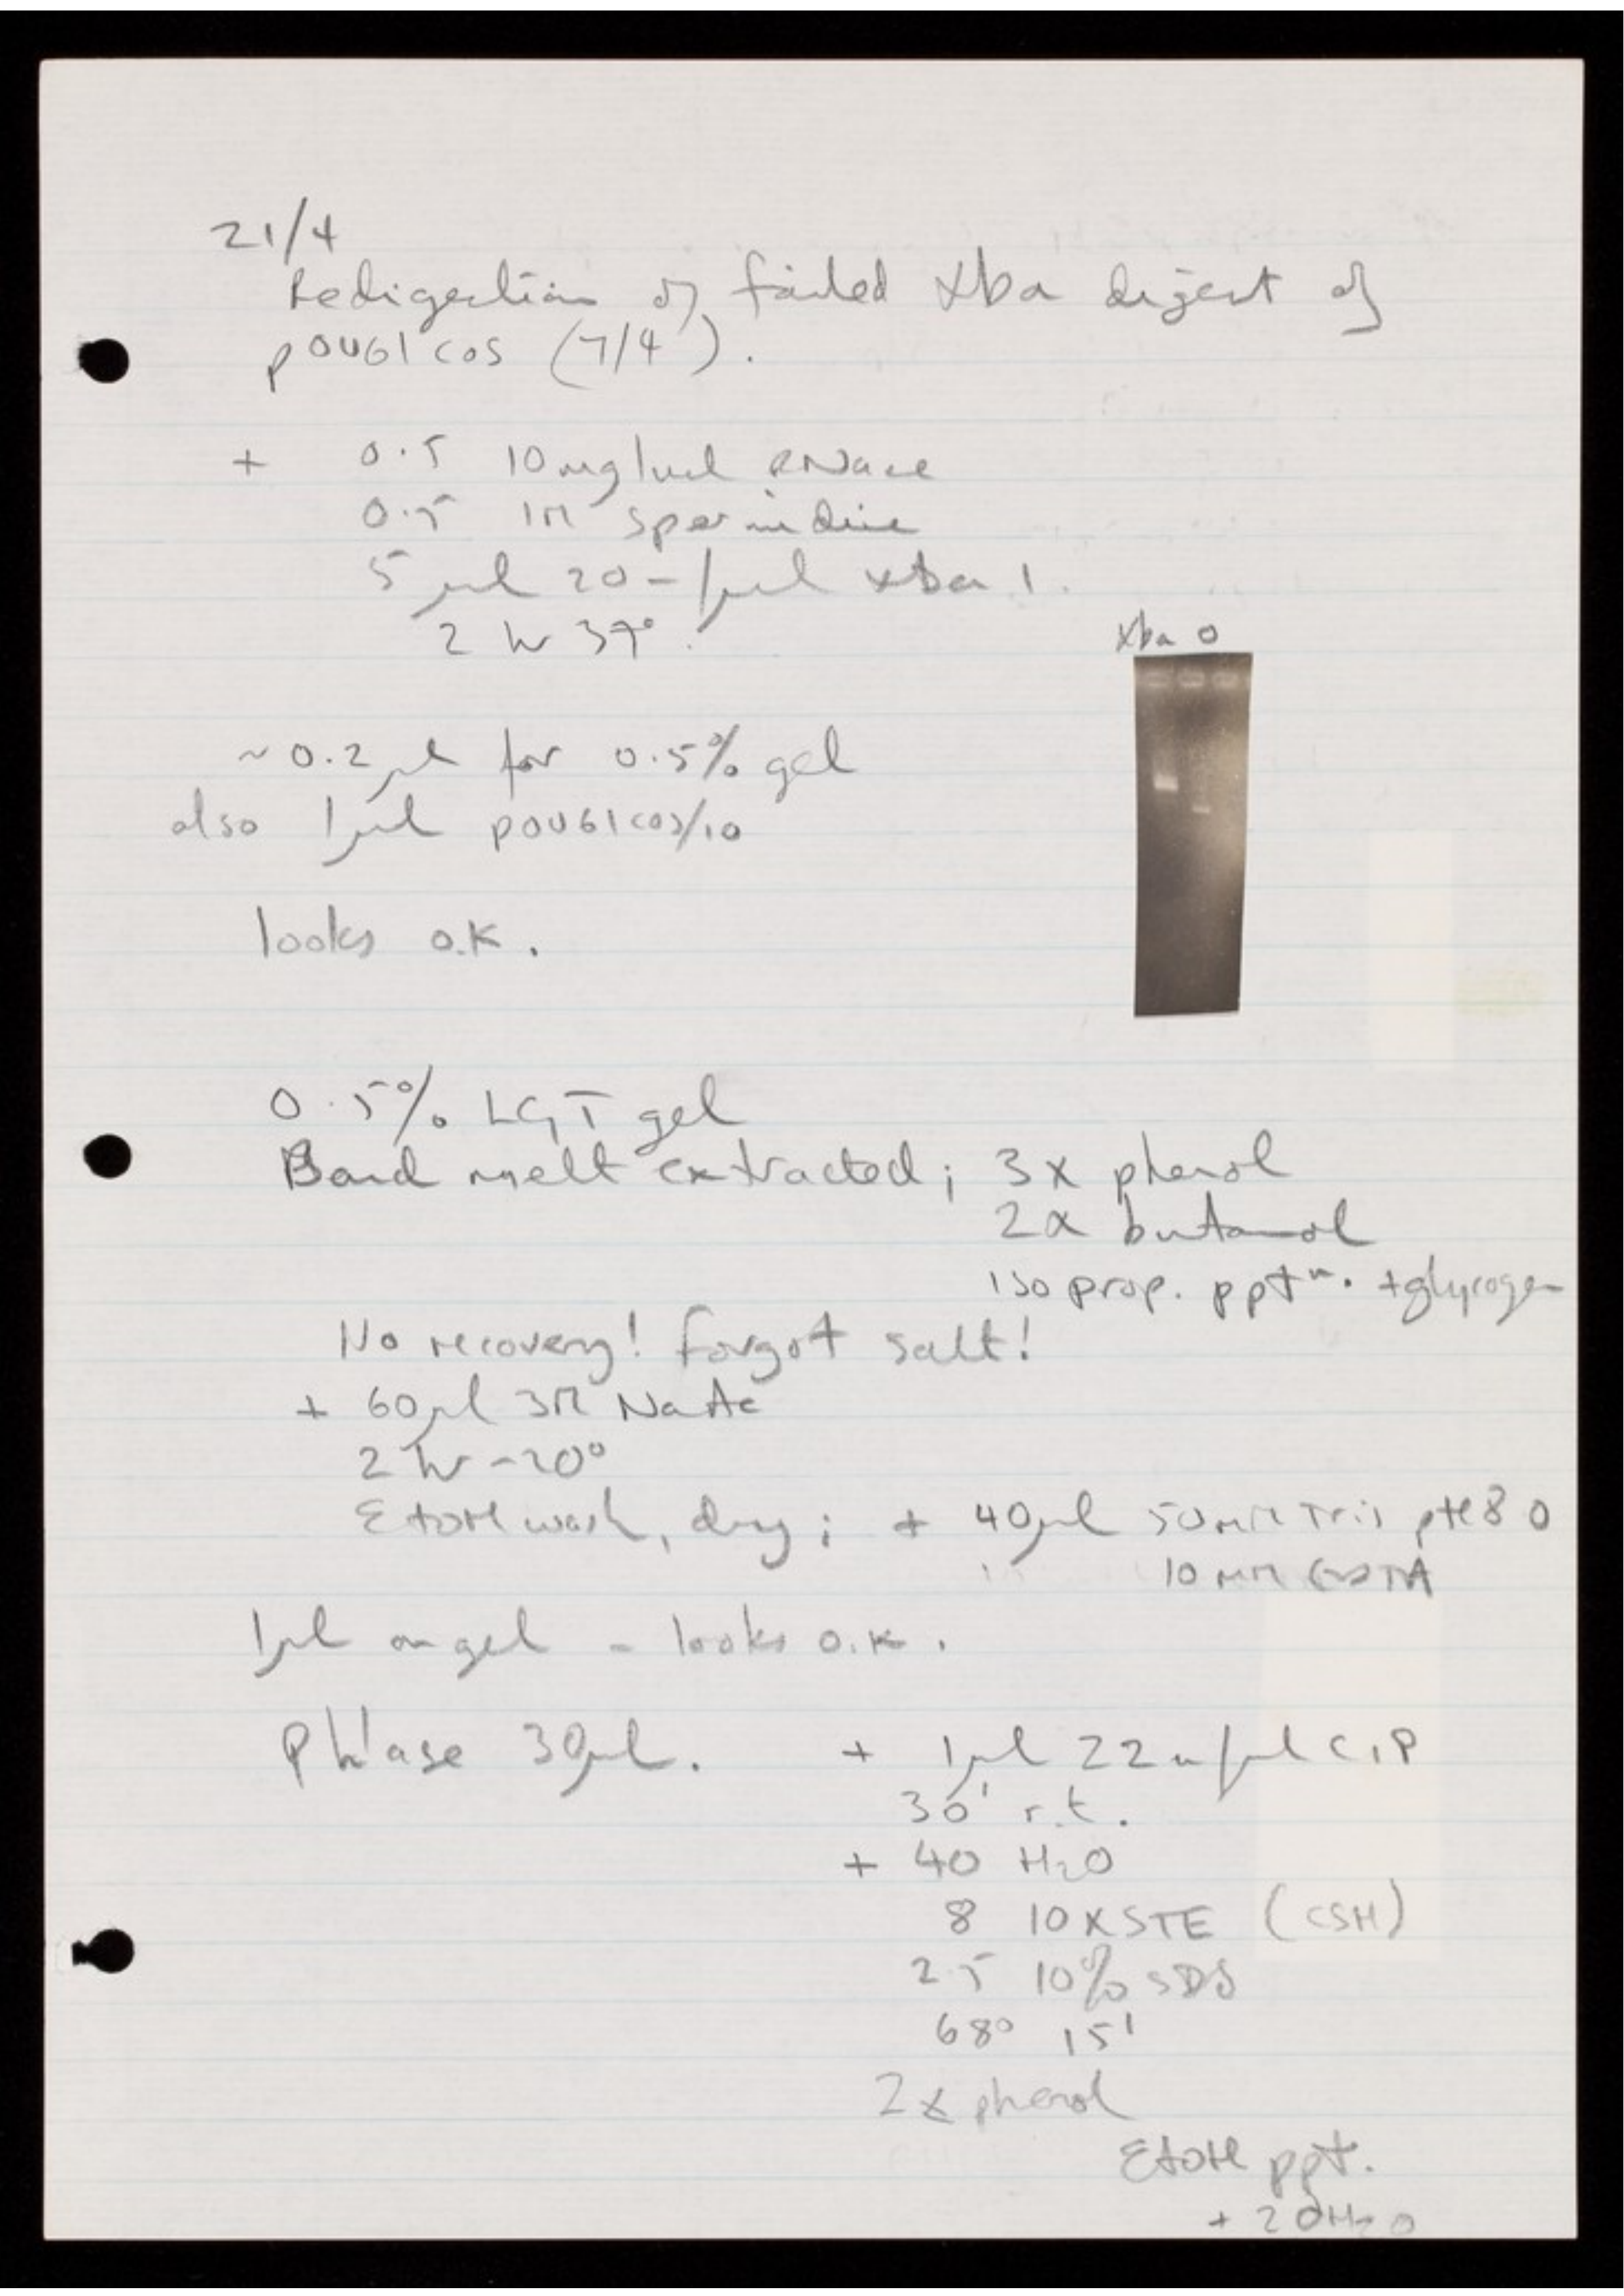 21/4
Redigestion of failed Xba digest of
pOU61cos (7/4).
+ 0.5 10mg/ml RNase
0.5 1M spermidine
5 µl 20-/µl xba 1.
2 hr 37°.
Xba 0
~0.2µl for 0.5% gel
also 1µl pOU61cos/10
looks o.k.
0.5% LGT gel
Band melt extracted; 3x phenol
2x butanol
iso prop. pptn. + glycogen
No recovery! Forgot salt!
+ 60µl 3M NaAc
2 hr -20°
EtOH wash, dry; + 40µl 50mM Tris pH8.0
10 mM EDTA
1µl on gel - looks o.k.
Ph'ase 30µl. + 1µl 22u/µl CIP
30' r.t.
+ 40 H2O
8 10xSTE (CSH)
2.5 10% SDS
68° 15'
2x phenol
EtOH ppt.
+ 20H2O